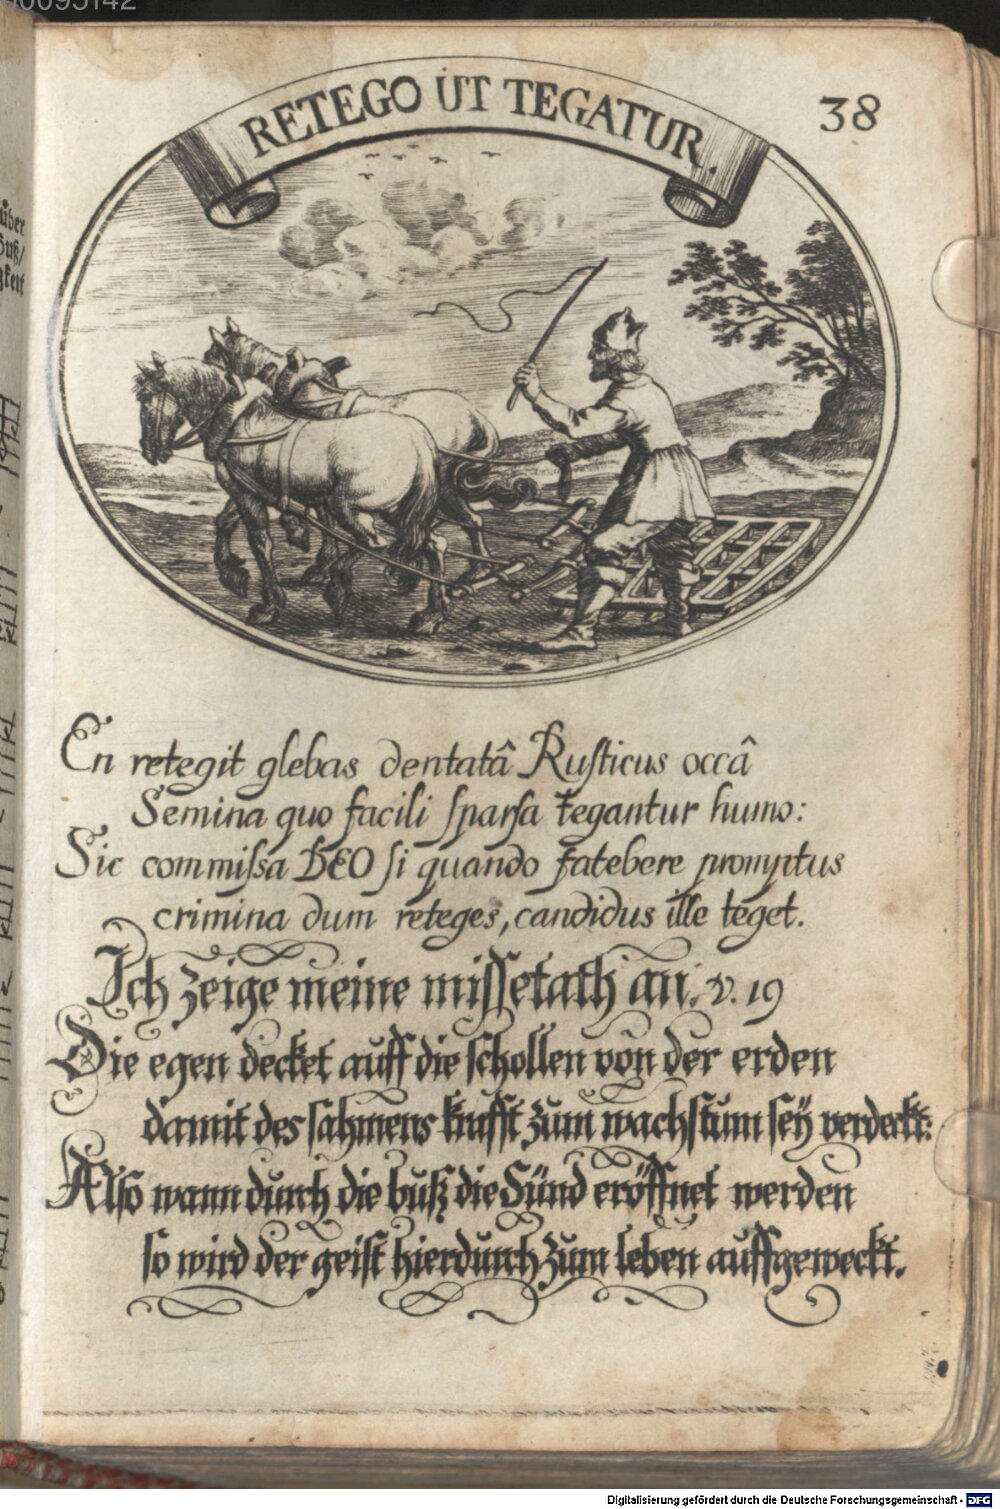 00095142
RETEGO UT TEGATUR.
38
En retegit glebas dentatâ Rusticus occâ
Semina quo facili sparsa tegantur humo:
Sic commissa DEO si quando fatebere promptus
crimina dum reteges, candidus ille teget.
Ich zeige meine missetath an. v. 19
Die egen decket auff die schollen von der erden
damit des sahmens krafft zum wachstum seÿ verdeckt:
Also wann durch die buß die Sünd eröffnet werden
so wird der geist hierdurch zum leben auffgeweckt.
Digitalisierung gefördert durch die Deutsche Forschungsgemeinschaft - DFG